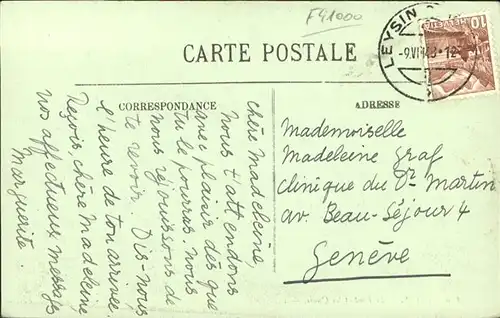 F41000
LEYSIN
-9.VI
10
HELVETIA
CARTE POSTALE
CORRESPONDANCE
ADRESSE
chère Madeleine,
nous t'attendons
avec plaisir dès que
tu le pourras. nous
nous réjouissons de
te revoir. Dis-nous
l'heure de ton arrivée.
Reçois chère Madeleine
nos affectueux messages
Marguerite.
Mademoiselle
Madeleine Graf
Clinique du Dr Martin
av. Beau-Séjour 4
Genève